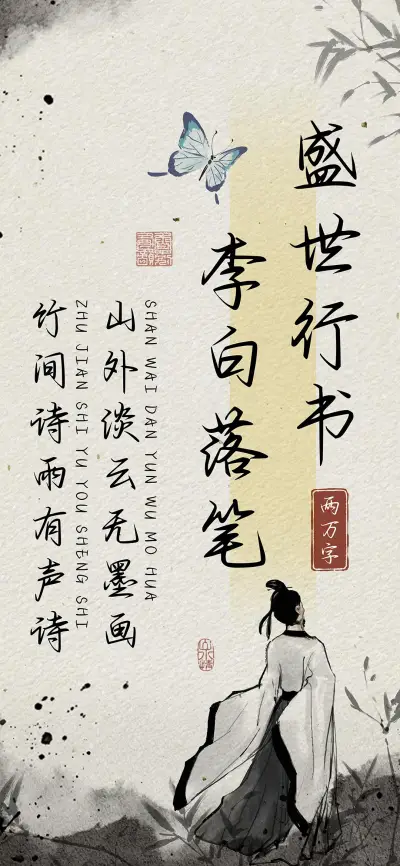 盛世行书
两万字
李白落笔
山外淡云无墨画
SHAN WAI DAN YUN WU MO HUA
竹间诗雨有声诗
ZHU JIAN SHI YU YOU SHENG SHI